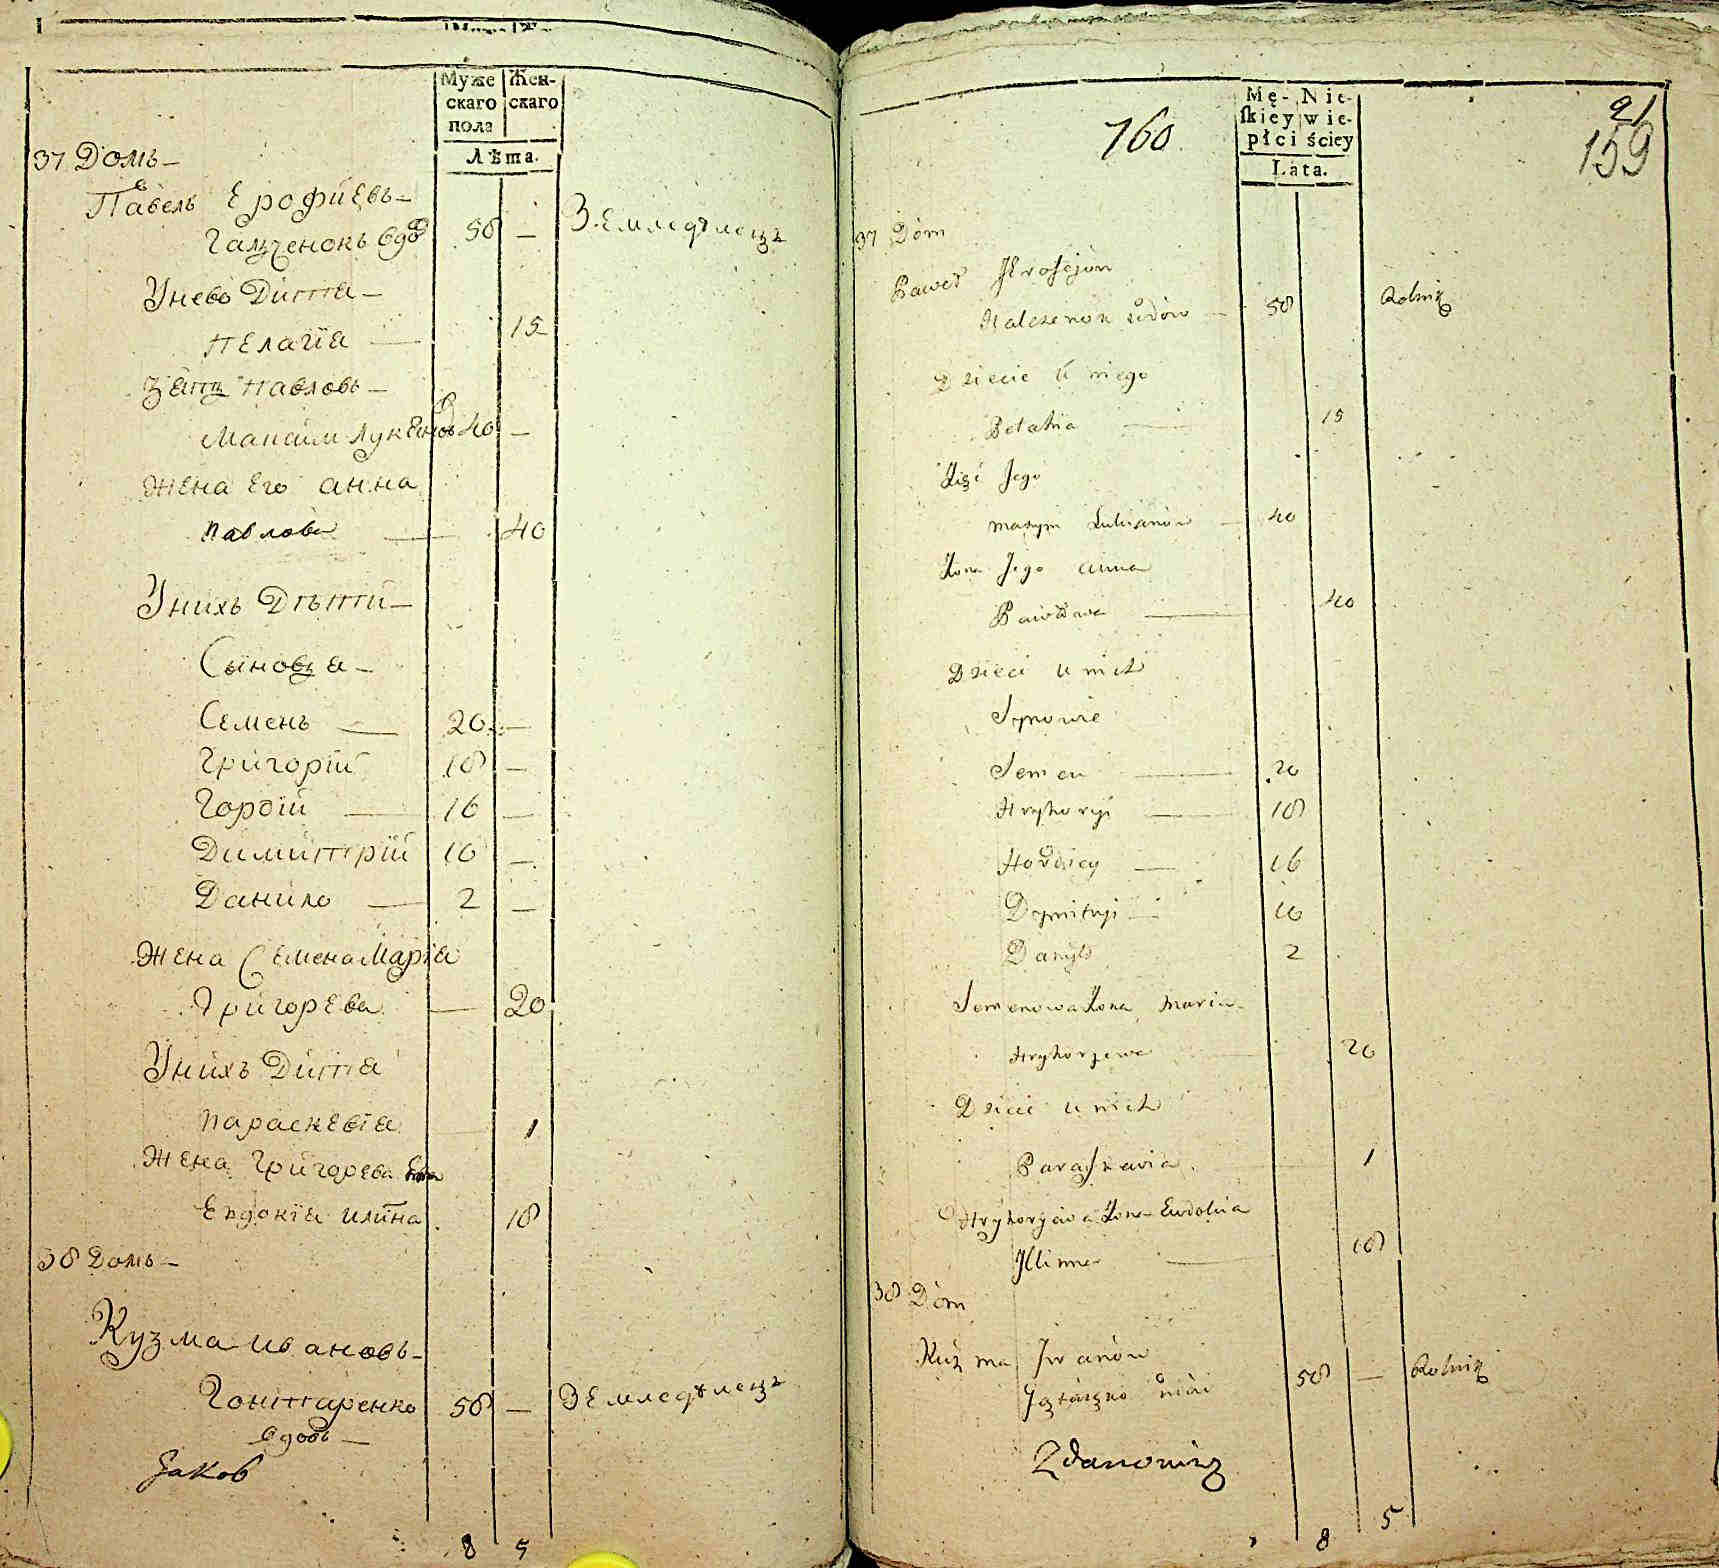 Муже Жен-
скаго скаго
пола
Лѣта.
37 Домъ —
Павелъ Ерофиевъ —
Галченокъ вдов 58 — Земледѣлецъ
Унево Дитя —
Пелагія — 15
Зять Павловъ —
Макаим Лукяновъ 40 —
Жена Его анна
Павлова — 40
Унихъ Дѣти —
Сыновья —
Семенъ — 20 —
Григорій 18 —
Гордій — 16 —
Димитрій 10 —
Данило — 2 —
Жена Семена Марія
Григорева — 20
Унихъ Дитя
Параскевія — 1
Жена Григорева
Евдокія илїна 18
38 Домъ —
Кузма ивановъ —
Гонтаренко 58 — Земледѣлецъ
вдовъ —
Яаков
8 5
21
159
760
Mę- Nie-
skiey wie-
płci ściey
Lata.
37 Dóm
Paweł Jerofejow
Halczenok wdów — 58 Rolnik
Dziecie u niego
Pelahia — 15
Zięć Jego
maxym Lukianów — 40
Żona Jego anna
Pawłowa — 40
Dzieci u nich
Synowie
Semen — 20
Hryhoryi — 18
Hordiey — 16
Dymitryi — 10
Danyło 2
Semenowa Żona Maria
Hryhorjewa — 20
Dzieci u nich
Paraskawia — 1
Hryhorjewa Żona Ewdokia
Illinna — 18
38 Dóm
Kuzma Iwanów
58 — Rolnik
Zdanowicz
8 5